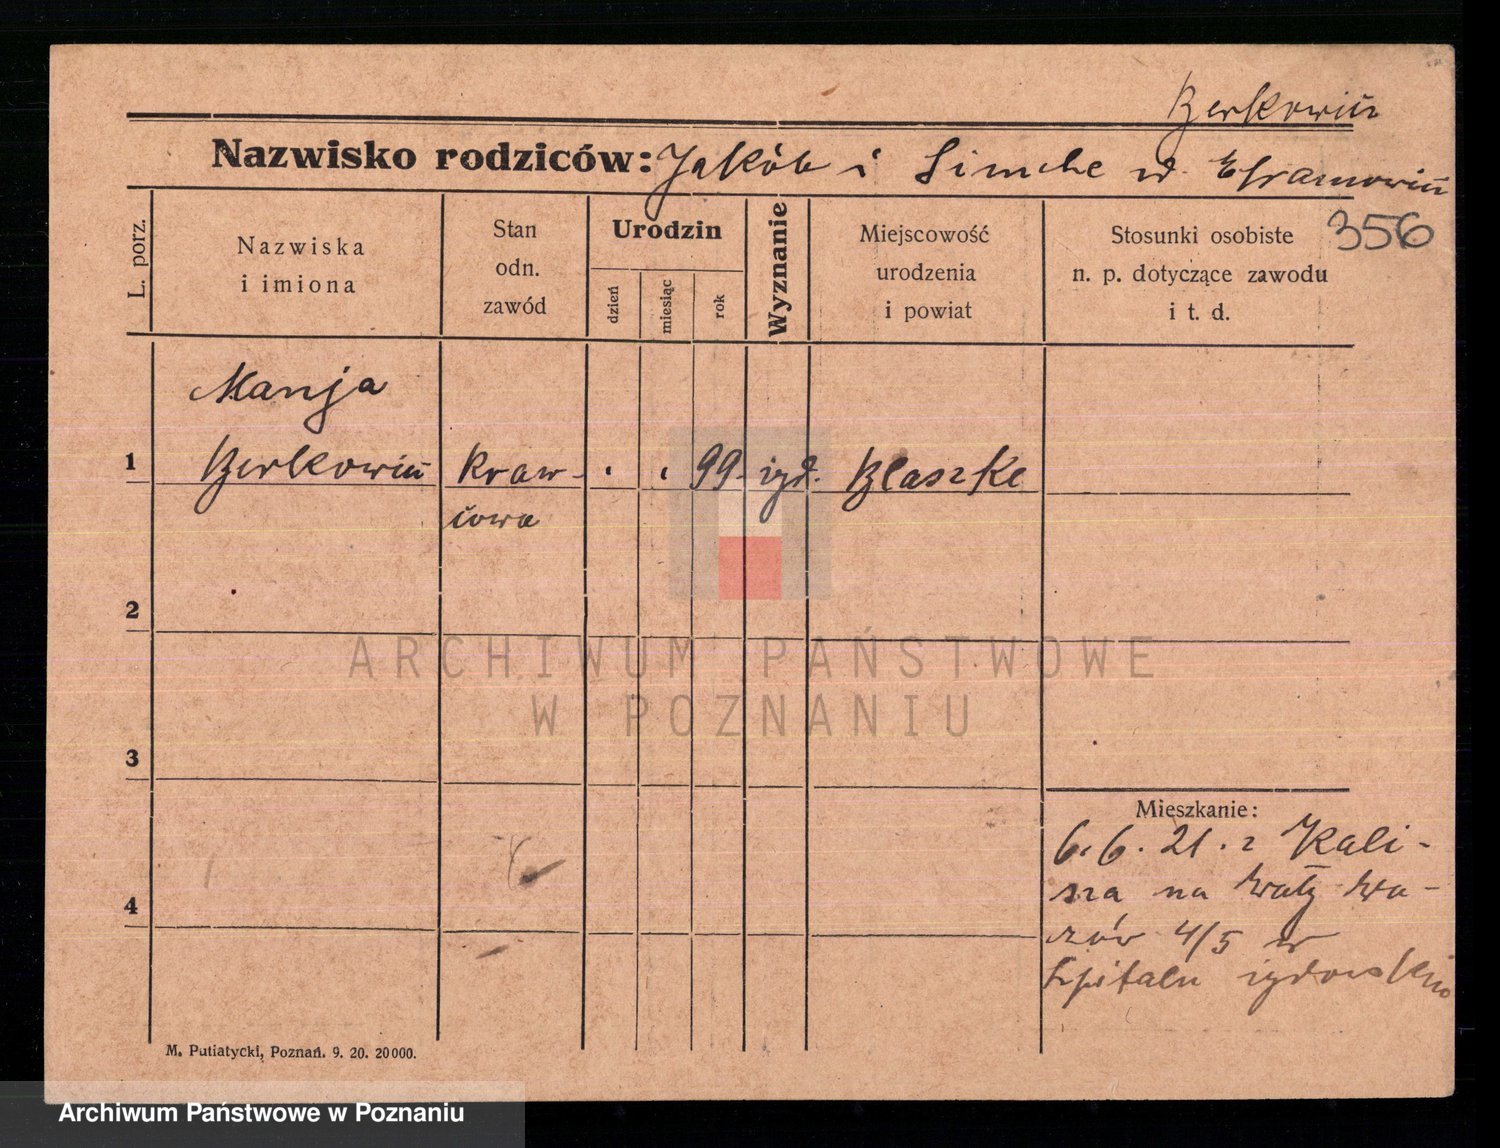 Berkowicz
Nazwisko rodziców: Jakób i Simche
356
L. porz.
Nazwiska
i imiona
Stan
odn.
zawód
Urodzin
dzień
miesiąc
rok
Wyznanie
Miejscowość
urodzenia
i powiat
Stosunki osobiste
n. p. dotyczące zawodu
i t. d.
Manja
1 Berkowicz kraw- 99 żyd. Blaszke
cowa
2
3
4
Mieszkanie:
6. 6. 21. z Kali-
sza na Wały Wa-
zów 4/5 w
Szpitalu żydowskim
M. Putiatycki, Poznań. 9. 20. 20000.
ARCHIWUM PAŃSTWOWE
W POZNANIU
Archiwum Państwowe w Poznaniu